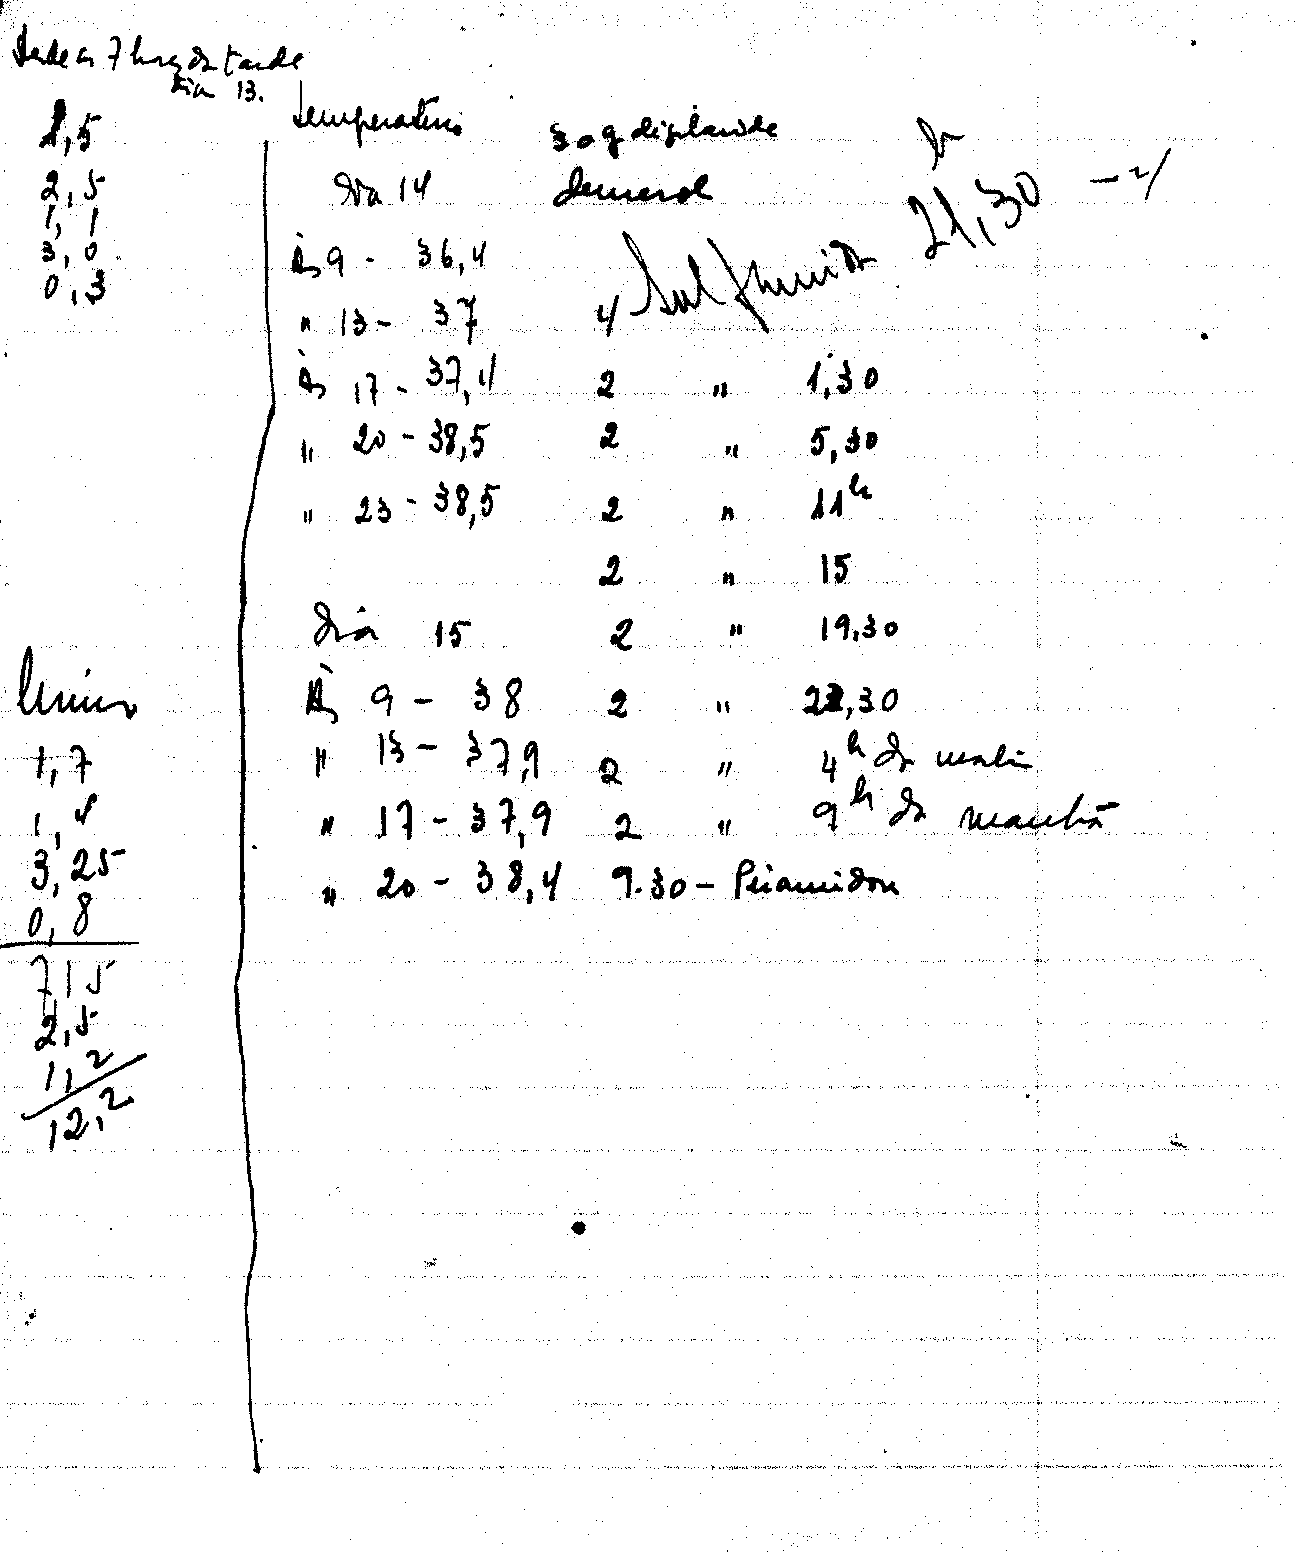 Desde as 7 horas da tarde
dia 13.
1,5
2,5
1,1
3,0
0,3
Urina
1,7
1,4
3,25
0,8
7,15
2,5
1,2
12,2
Temperatura
Dia 14
Às 9 - 36,4
" 13 - 37
Às 17 - 37,4
" 20 - 38,5
" 23 - 38,5
Dia 15
Às 9 - 38
" 13 - 37,9
" 17 - 37,9
" 20 - 38,4
30 g de
demerol
h
4 Sulfamida 21,30
2 " 1,30
2 " 5,30
2 " 11h
2 " 15
2 " 19,30
2 " 22,30
2 " 4h da
2 " 9h da manhã
9.30 - Piramidon